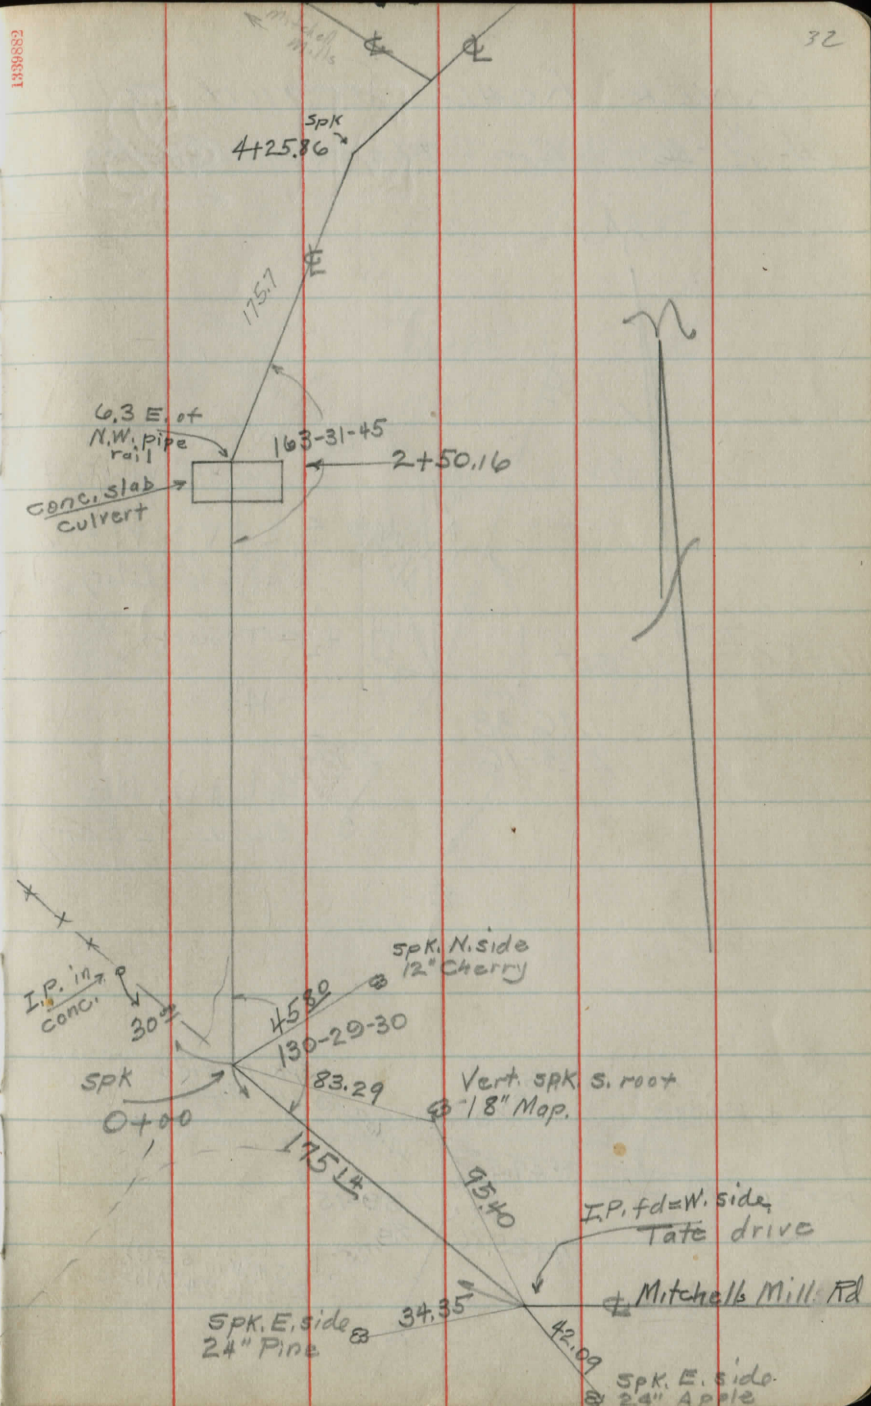 1339882
32
Mitchell
Mills
℄
℄
Spk
4+25.86
℄
175.7
N
6.3 E. of
N.W. pipe
rail
163-31-45
2+50.16
conc. slab
culvert
Spk. N. side
12" Cherry
I.P. in
conc.
30
45.80
130-29-30
Spk
0+00
83.29
Vert. spk. S. root
18" Map.
175.14
95.40
I.P. fd = W. side
Tate drive
℄ Mitchells Mill Rd
34.35
Spk. E. side
24" Pine
42.09
Spk. E. side
24" Apple